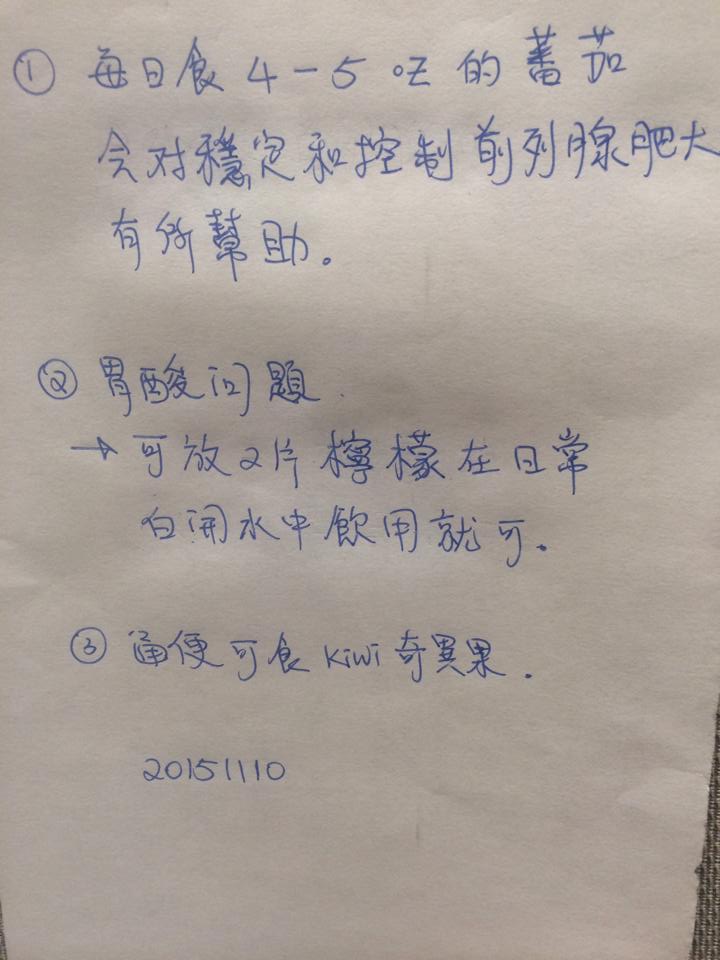 ① 每日食 4-5 oz 的蕃茄
会对穩定和控制前列腺肥大
有所幫助。
② 胃酸问題.
→ 可放2片檸檬在日常
白開水中飲用就可.
③ 通便可食 kiwi 奇異果.
20151110